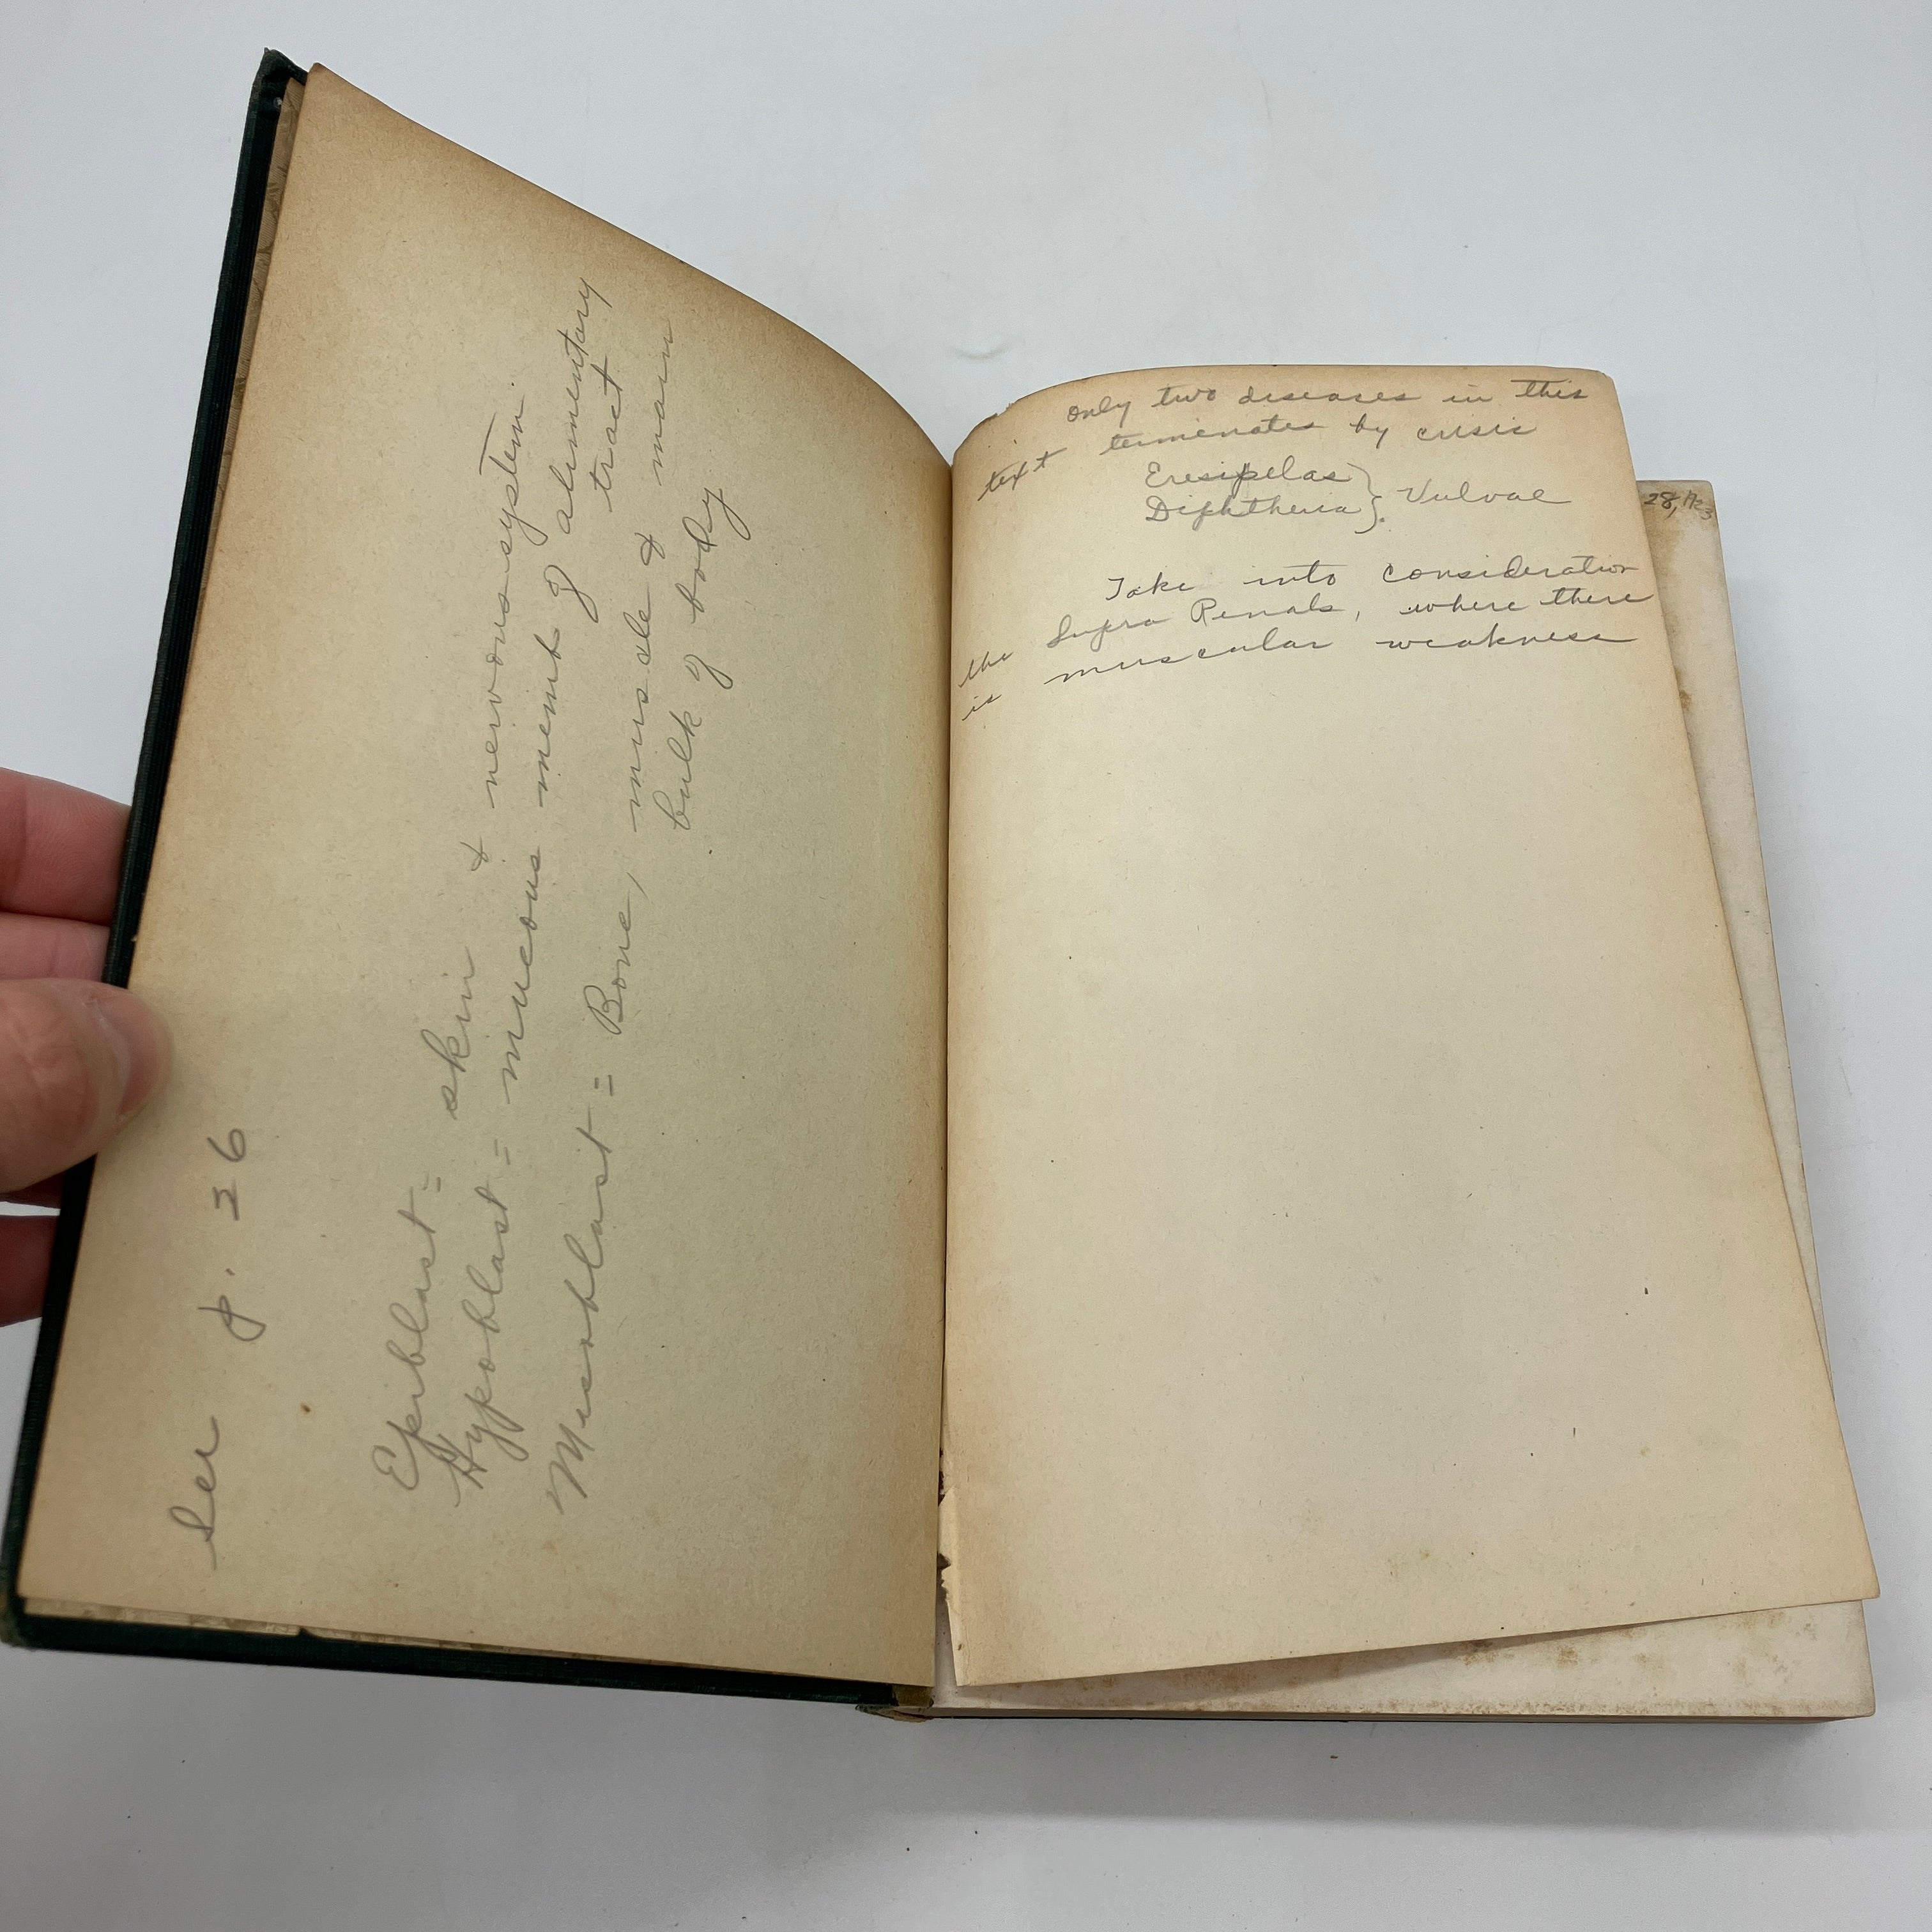 see p. 36
Epiblast = skin & nervous system
Hypoblast = mucous memb of alimentary
tract
Mesoblast = Bone, muscle & main
bulk of body
only two diseases in this
text terminates by crisis
Eresipelas
Diphtheria } Vulvae
Take into consideration
the Supra Renals, where there
is muscular weakness
28,